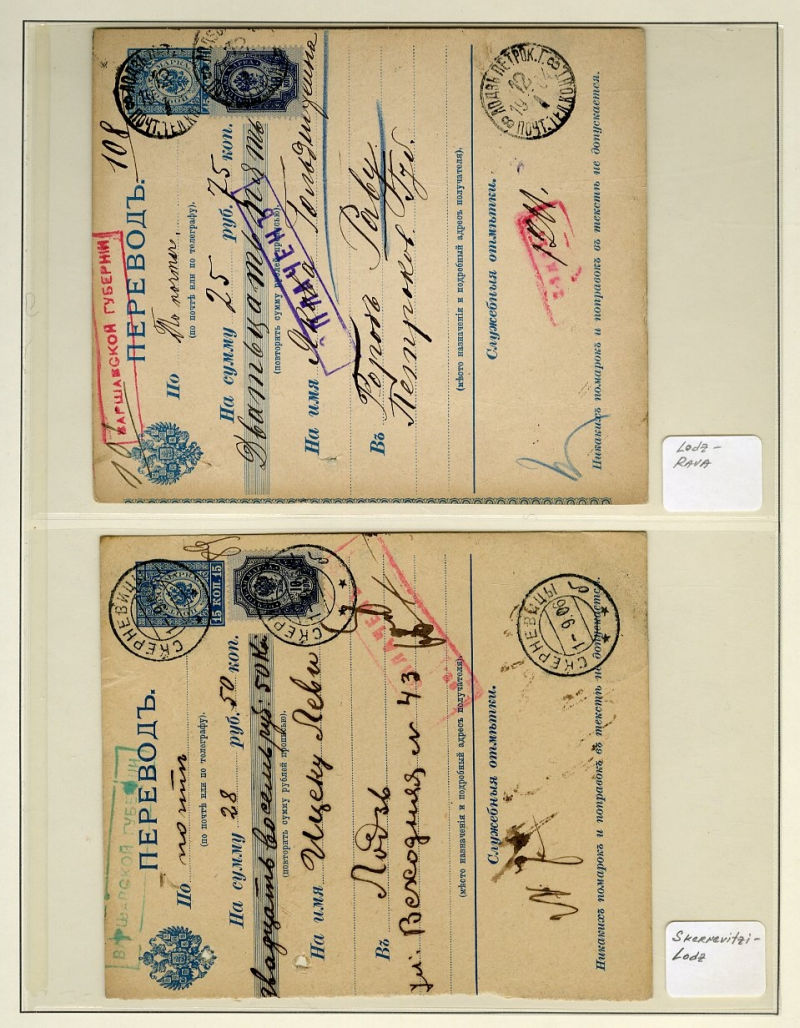 ВАРШАВСКОЙ ГУБЕРНІИ
ПЕРЕВОДЪ.
108
По По почты.
(по почтѣ или по телеграфу).
На сумму 25 руб. 75 коп.
Дватьцать пять
(повторить сумму рублей прописью).
ПЛАЧЕНЪ
На имя
Въ Городъ Раву
Петроков. Губ.
(мѣсто назначенія и подробный адресъ получателя).
Служебныя отмѣтки.
Никакихъ помарокъ и поправокъ въ текстѣ не допускается.
ЛОДЗЬ ПЕТРОК. Г.
12
ПОЧТ. ТЕЛ. КОНТ.
Lodz -
RAVA
ВАРШАВСКОЙ ГУБЕРНІИ
ПЕРЕВОДЪ.
По почти
(по почтѣ или по телеграфу).
На сумму 28 руб. 50 коп.
двадцать восемь руб: 50 Ко
(повторить сумму рублей прописью).
На имя Ицеку Леви
Въ Лодзь
ул: Всходняя № 43
(мѣсто назначенія и подробный адресъ получателя).
Служебныя отмѣтки.
Никакихъ помарокъ и поправокъ въ текстѣ не допускается.
15 КОП. 15
СКЕРНЕВИЦЫ
СКЕРНЕВИЦЫ
1-9.06
Skernevitzi -
Lodz